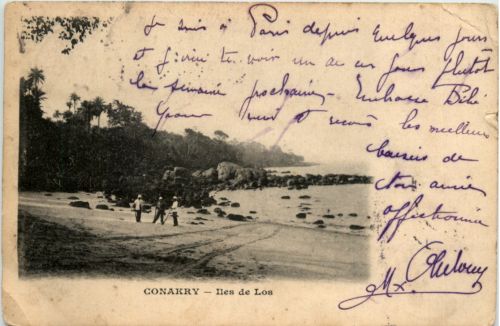 Je suis à Paris depuis quelques jours
et j'irai te voir un de ces jours plutôt
la semaine prochaine - Embrasse Bébé
pour moi et reçois les meilleurs
baisers de
ton amie
affectionnée
CONAKRY – Iles de Los